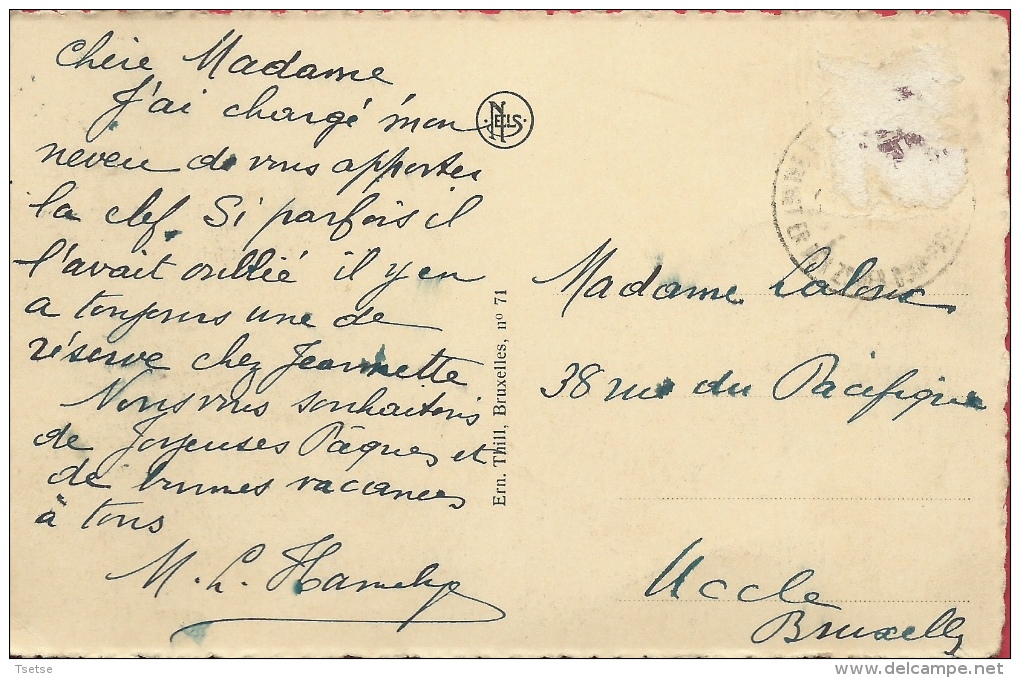 Chère Madame
J'ai chargé mon
neveu de vous apporter
la clef. Si parfois il
l'avait oublié il y en
a toujours une de
réserve chez Jeannette
Nous vous souhaitons
de Joyeuses Pâques et
de bonnes vacances
à tous
M. L.
NELS
Ern. Thill, Bruxelles, nº 71
Madame
38 rue du Pacifique
Uccle
Bruxelles
Tsetse
delcampe.net